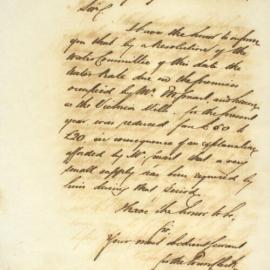 Sir,
I have the honor to inform
you that by a Resolution of the
Water Committee of this date the
Water Rate due on the premises
occupied by Mr
as the Victoria Mills for the present
year, was reduced from £60 to
£30, in consequence of an explanation
afforded by Mr that a very
small supply has been required by
him during that period.
I have the honor to be,
Sir
Your most obedient servant
for the Town Clerk